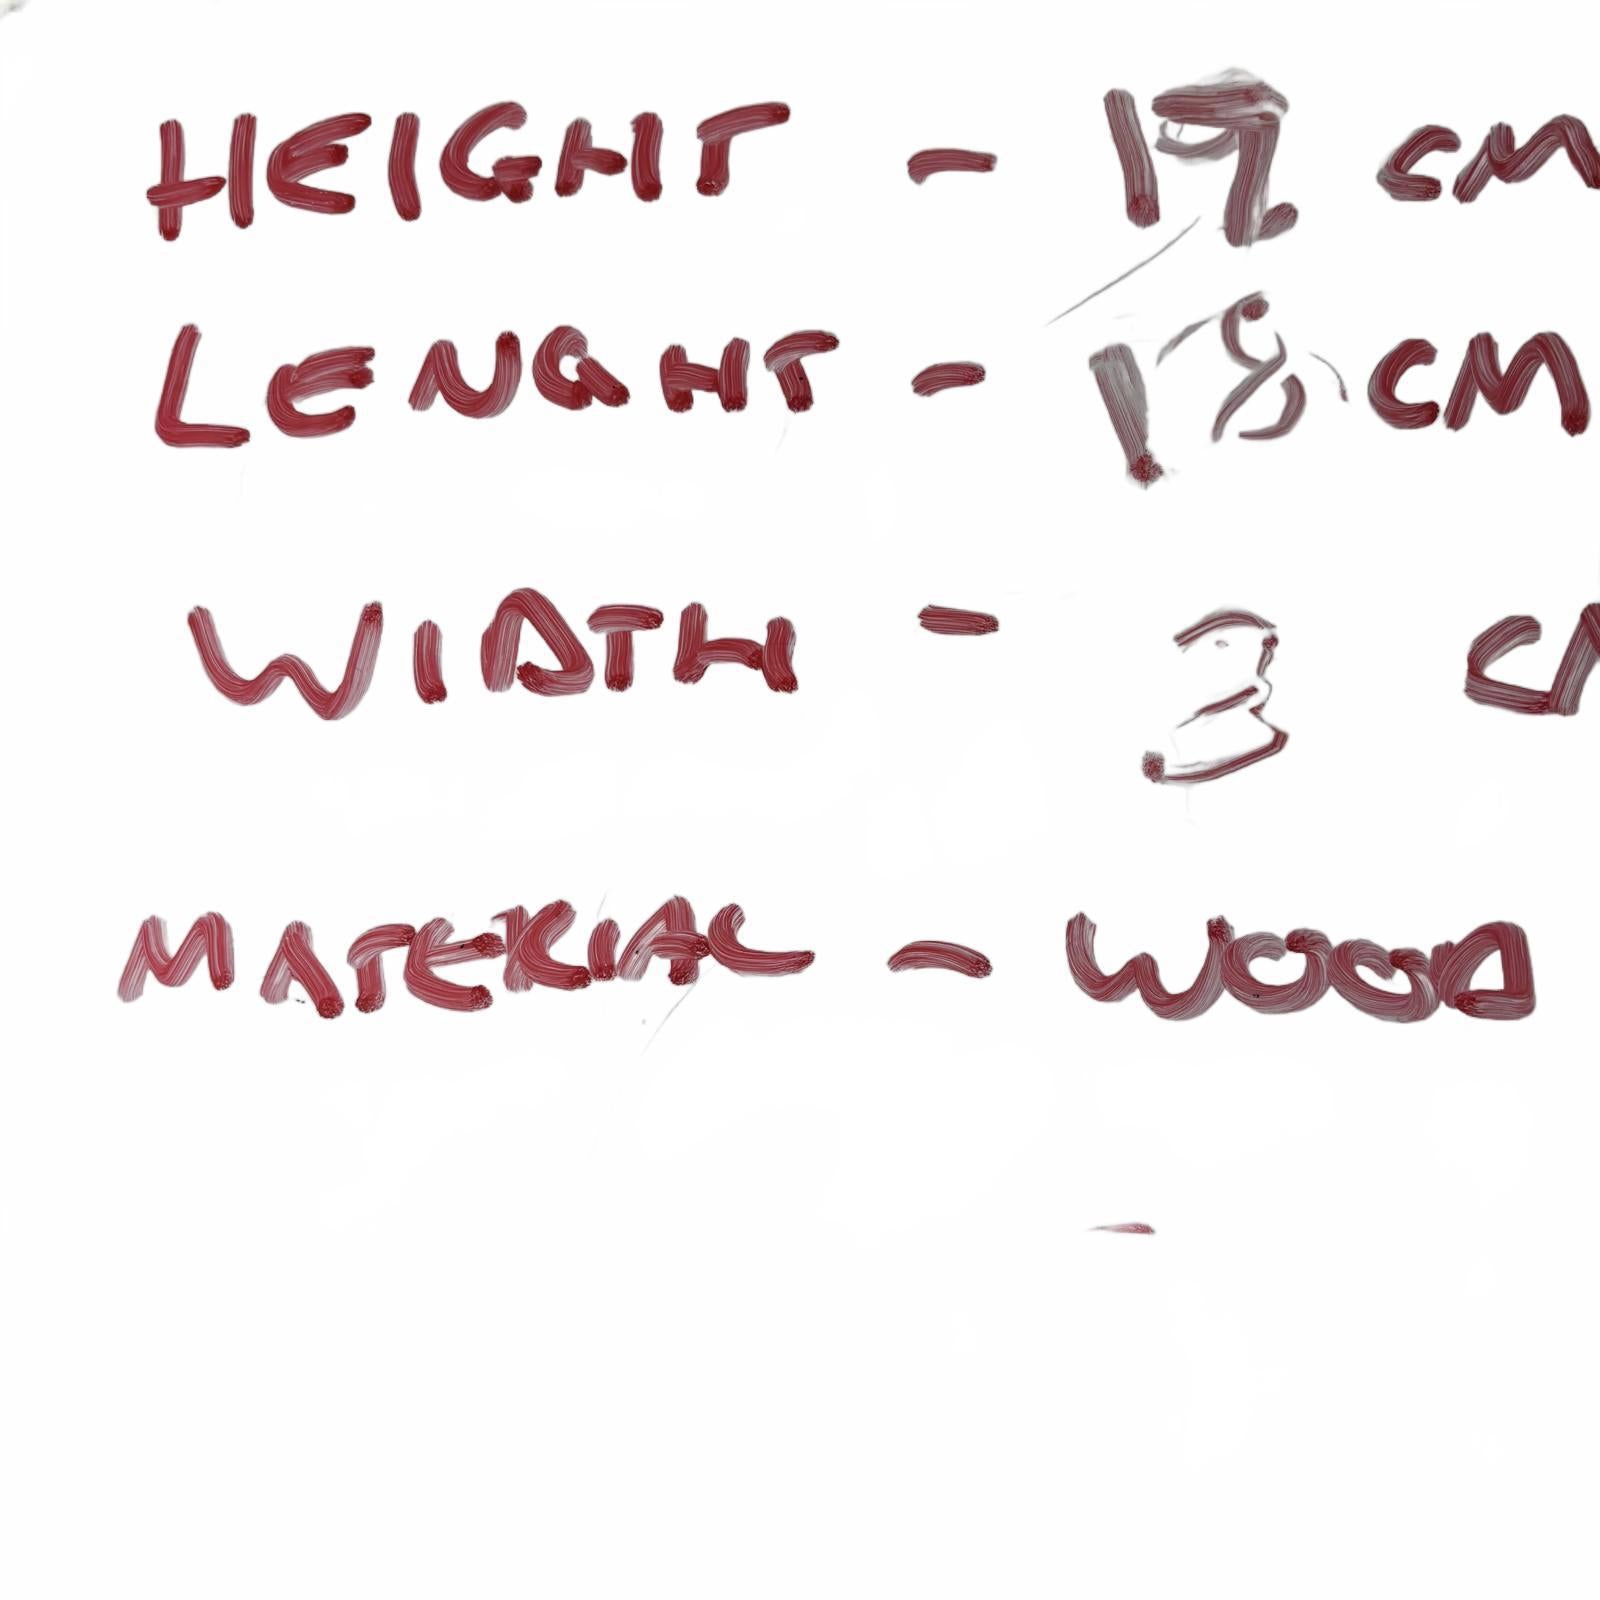 HEIGHT - 19 CM
LENGHT - 18 CM
WIDTH - 3 CM
MATERIAL - WOOD